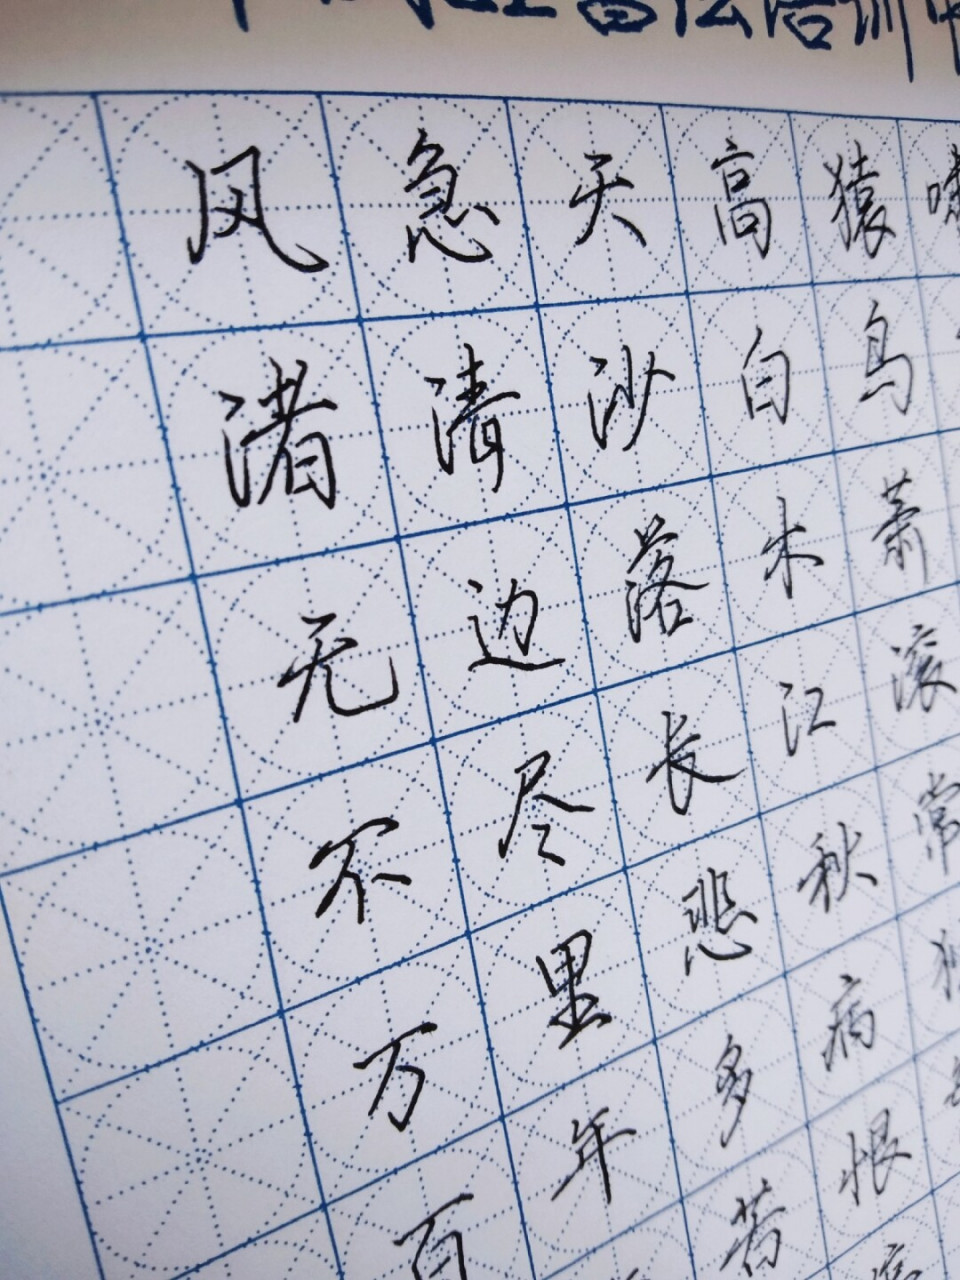 书法培训
风急天高猿啸
渚清沙白鸟
无边落木萧
不尽长江滚
万里悲秋常
百年多病独
苦恨